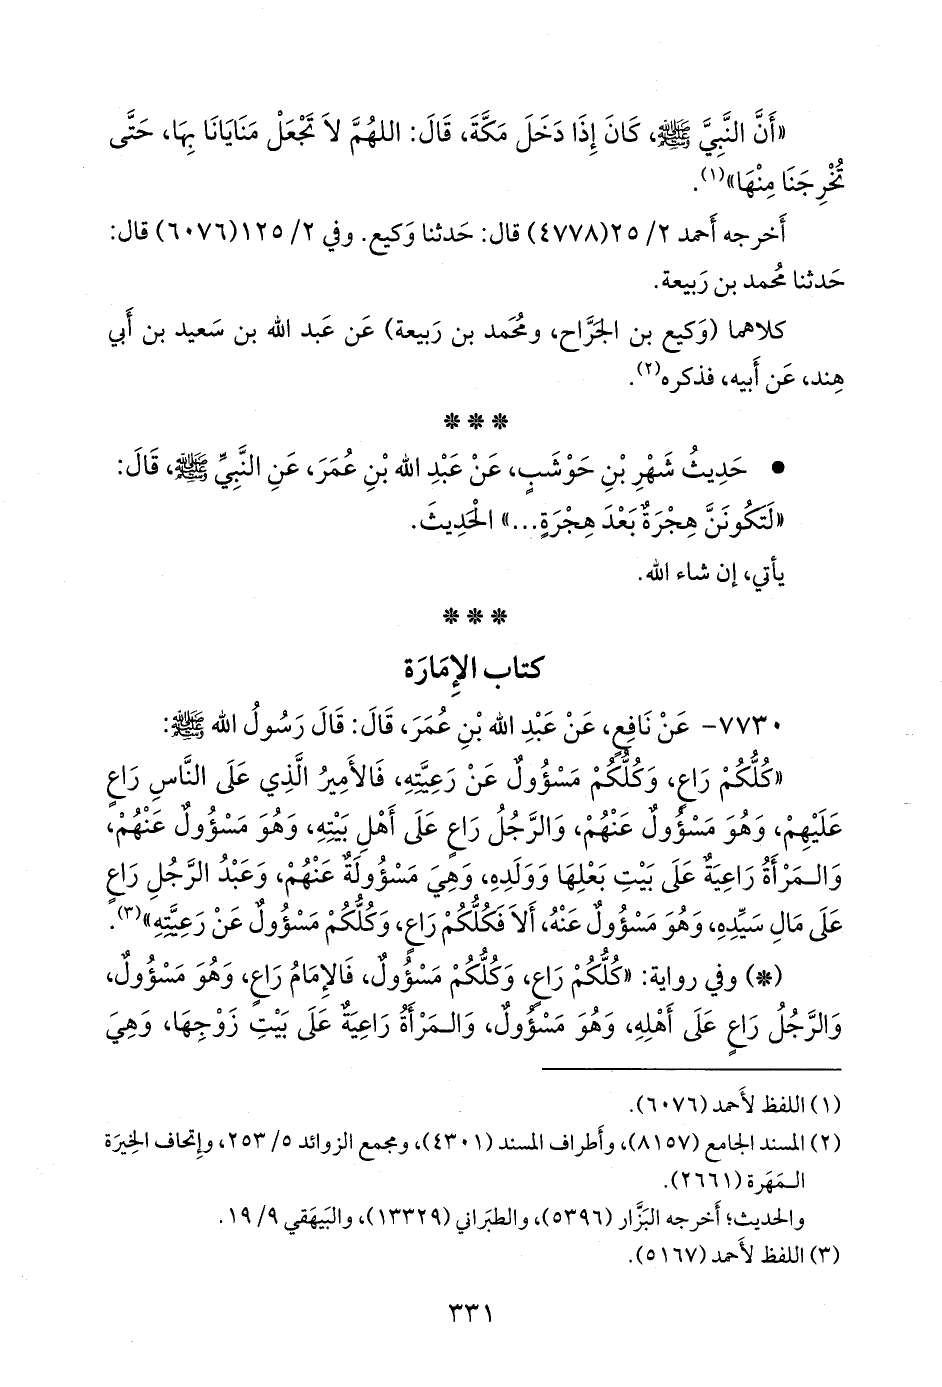 «أَنَّ النَّبِيَّ ﷺ، كَانَ إِذَا دَخَلَ مَكَّةَ، قَالَ: اللهُمَّ لاَ تَجْعَلْ مَنَايَانَا بِهَا، حَتَّى
تُخْرِجَنَا مِنْهَا»(١).
أَخرجه أَحمد ٢/ ٢٥(٤٧٧٨) قال: حَدثنا وَكيع. وفي ٢/ ١٢٥(٦٠٧٦) قال:
حَدثنا مُحمد بن رَبيعة.
كلاهما (وَكيع بن الجَرَّاح، ومُحَمد بن رَبيعة) عَن عَبد الله بن سَعيد بن أَبي
هِند، عَن أَبيه، فذكره(٢).
***
• حَدِيثُ شَهْرِ بْنِ حَوْشَبٍ، عَنْ عَبْدِ الله بْنِ عُمَرَ، عَنِ النَّبِيِّ ﷺ، قَالَ:
«لَتَكُونَنَّ هِجْرَةٌ بَعْدَ هِجْرَةٍ...» الْحَدِيثَ.
يأتي، إن شاء الله.
***
كتاب الإِمَارَة
٧٧٣٠- عَنْ نَافِعٍ، عَنْ عَبْدِ الله بْنِ عُمَرَ، قَالَ: قَالَ رَسُولُ الله ﷺ:
«كُلُّكُمْ رَاعٍ، وَكُلُّكُمْ مَسْؤُولٌ عَنْ رَعِيَّتِهِ، فَالأَمِيرُ الَّذِي عَلَى النَّاسِ رَاعٍ
عَلَيْهِمْ، وَهُوَ مَسْؤُولٌ عَنْهُمْ، وَالرَّجُلُ رَاعٍ عَلَى أَهْلِ بَيْتِهِ، وَهُوَ مَسْؤُولٌ عَنْهُمْ،
وَالـمَرْأَةُ رَاعِيَةٌ عَلَى بَيْتِ بَعْلِهَا وَوَلَدِهِ، وَهِيَ مَسْؤُولَةٌ عَنْهُمْ، وَعَبْدُ الرَّجُلِ رَاعٍ
عَلَى مَالِ سَيِّدِهِ، وَهُوَ مَسْؤُولٌ عَنْهُ، أَلاَ فَكُلُّكُمْ رَاعٍ، وَكُلُّكُمْ مَسْؤُولٌ عَنْ رَعِيَّتِهِ»(٣).
(*) وفي رواية: «كُلُّكُمْ رَاعٍ، وَكُلُّكُمْ مَسْؤُولٌ، فَالإِمَامُ رَاعٍ، وَهُوَ مَسْؤُولٌ،
وَالرَّجُلُ رَاعٍ عَلَى أَهْلِهِ، وَهُوَ مَسْؤُولٌ، وَالـمَرْأَةُ رَاعِيَةٌ عَلَى بَيْتِ زَوْجِهَا، وَهِيَ
(١) اللفظ لأَحمد (٦٠٧٦).
(٢) المسند الجامع (٨١٥٧)، وأَطراف المسند (٤٣٠١)، ومجمع الزوائد ٥/ ٢٥٣، وإتحاف الخِيرَة
الـمَهَرة (٢٦٦١).
والحديث؛ أَخرجه البَزَّار (٥٣٩٦)، والطبَراني (١٣٣٢٩)، والبَيهَقي ٩/ ١٩.
(٣) اللفظ لأَحمد (٥١٦٧).
٣٣١